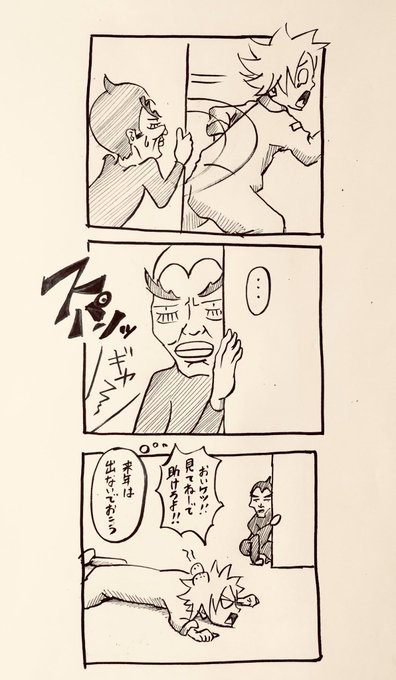 ・・・
スパンッ
ギャ
おいケツ!!
見てねーで
助けろよ!!
来年は
出ないでおこう